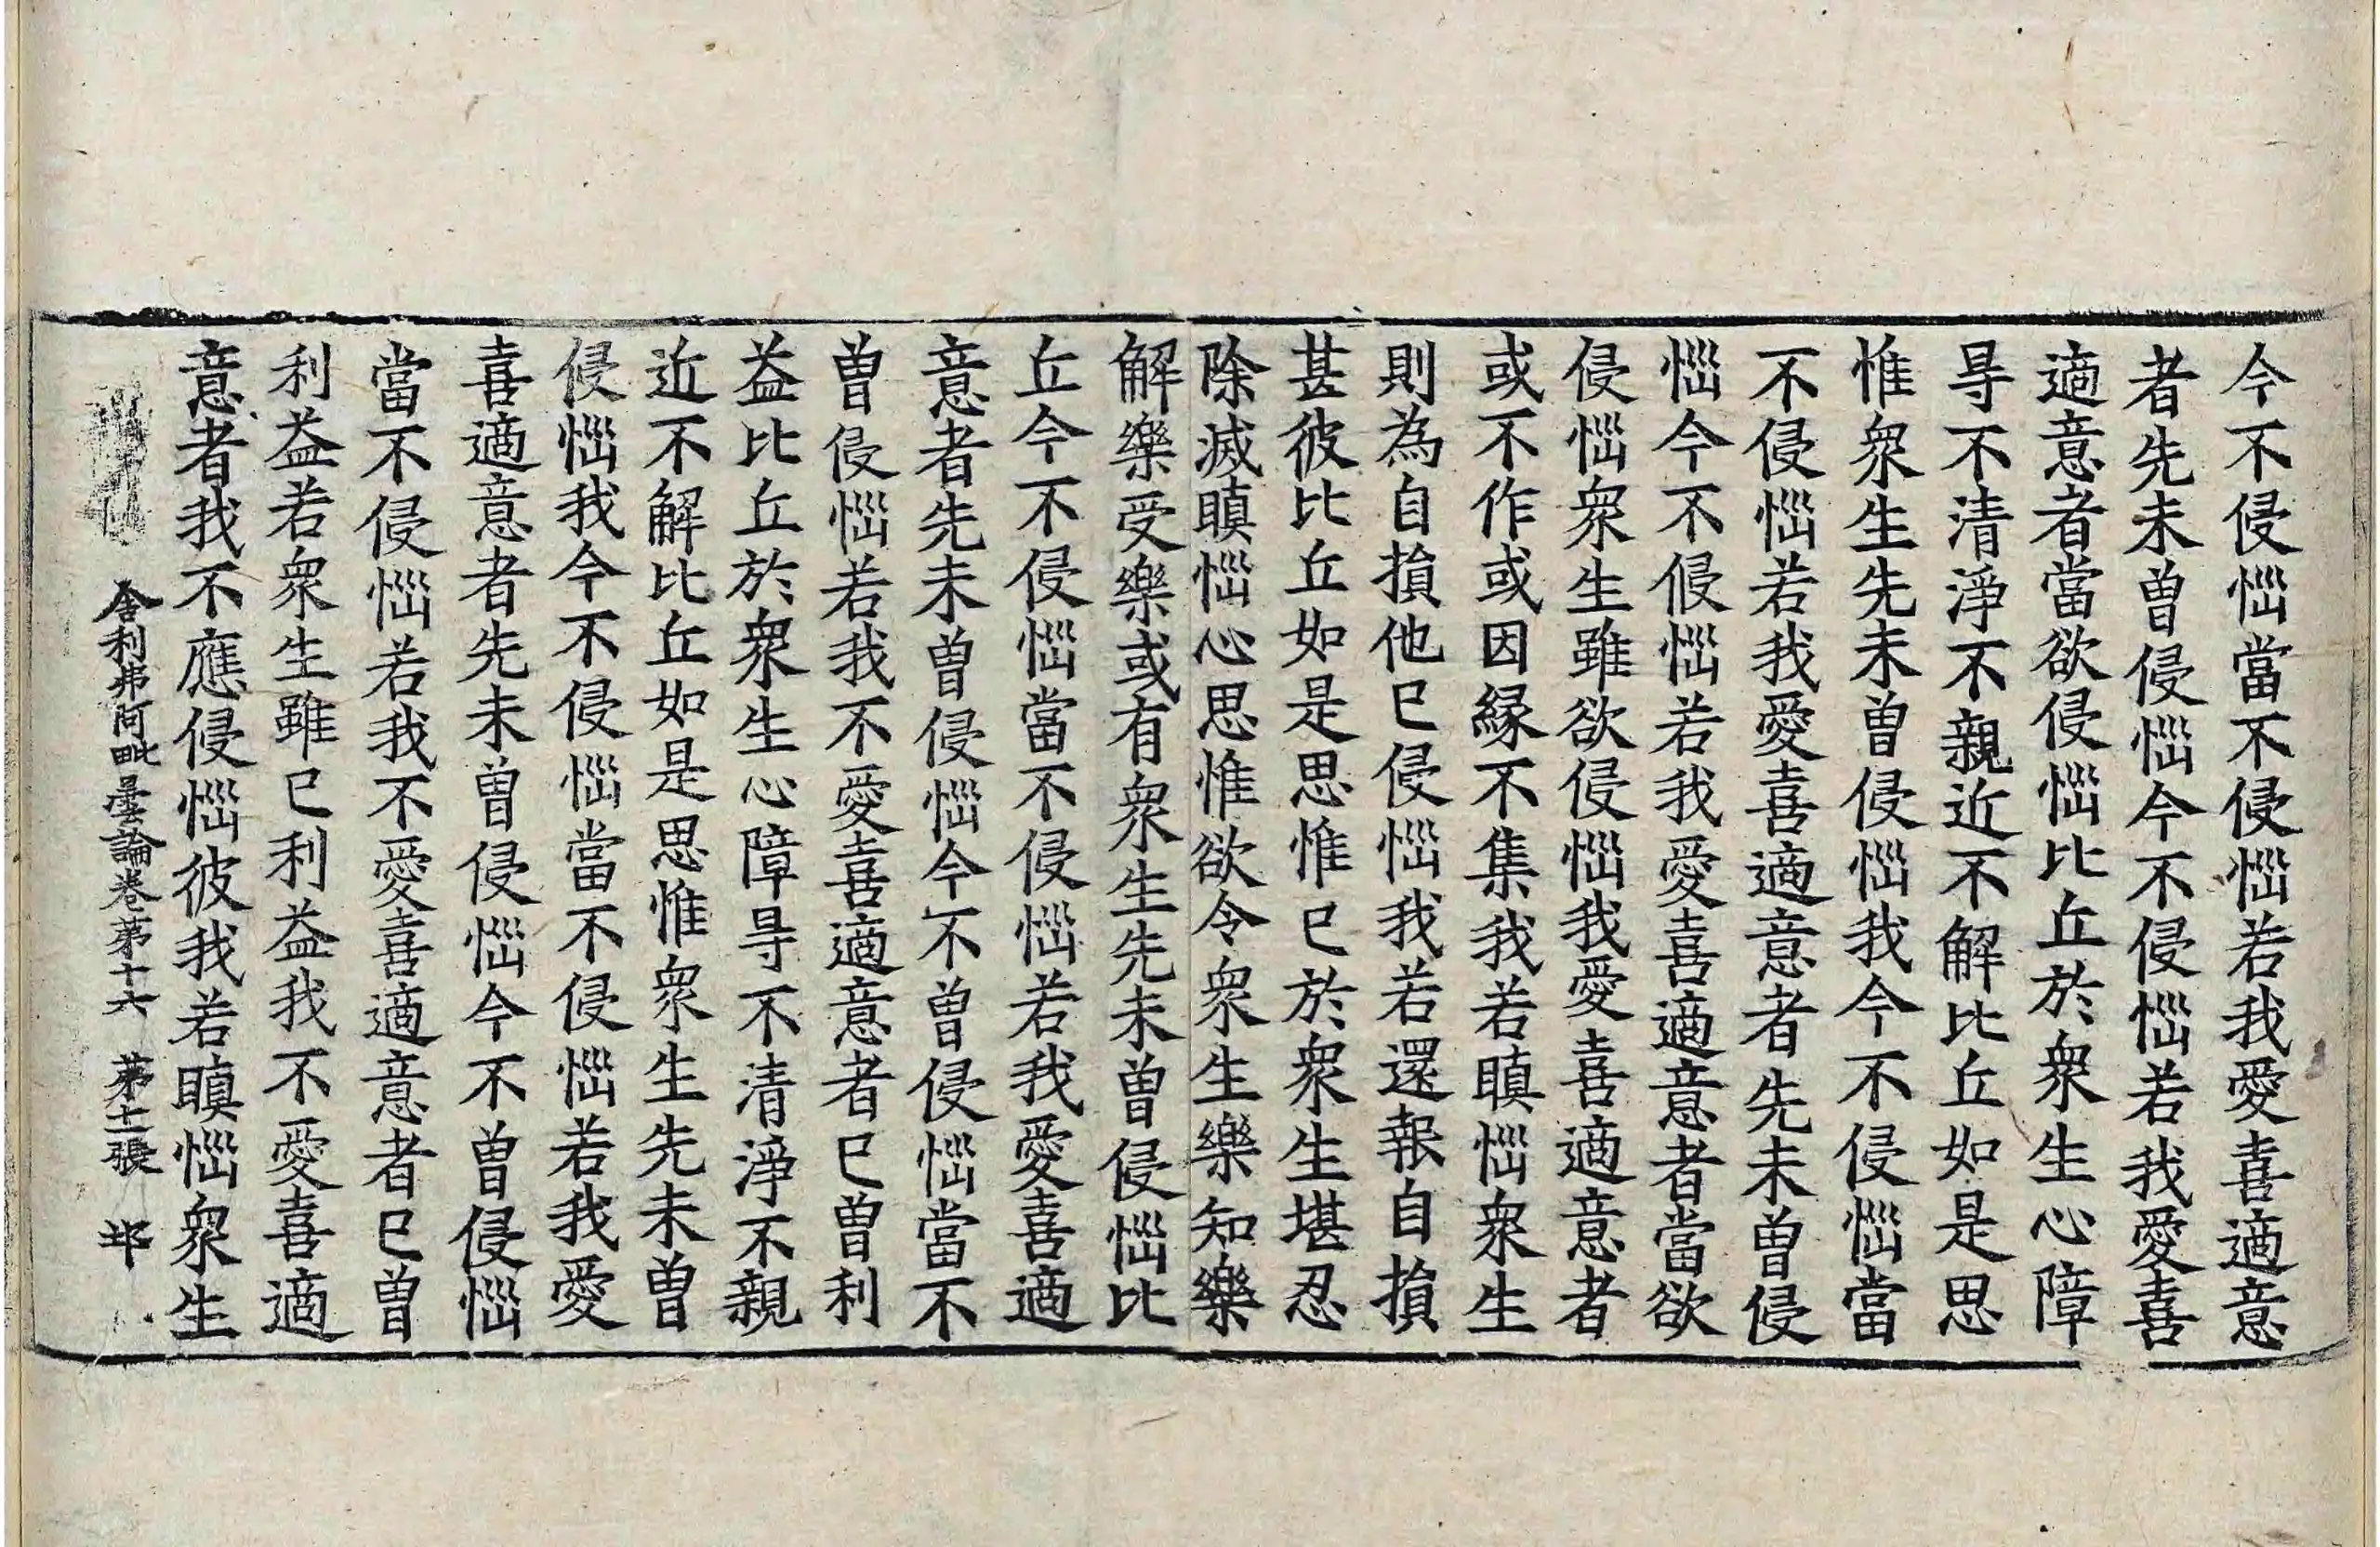 今不侵惱當不侵惱若我愛喜適意
者先未曽侵惱今不侵惱若我愛喜
適意者當欲侵惱比丘於衆生心障
㝵不清淨不親近不解比丘如是思
惟衆生先未曽侵惱我今不侵惱當
不侵惱若我愛喜適意者先未曽侵
惱今不侵惱若我愛喜適意者當欲
侵惱衆生雖欲侵惱我愛喜適意者
或不作或因縁不集我若瞋惱衆生
則為自損他已侵惱我若還報自損
甚彼比丘如是思惟已於衆生堪忍
除滅瞋惱心思惟欲令衆生樂知樂
解樂受樂或有衆生先未曽侵惱比
丘今不侵惱當不侵惱若我愛喜適
意者先未曽侵惱今不曽侵惱當不
曽侵惱若我不愛喜適意者已曽利
益比丘於衆生心障㝵不清淨不親
近不解比丘如是思惟衆生先未曽
侵惱我今不侵惱當不侵惱若我愛
喜適意者先未曽侵惱今不曽侵惱
當不侵惱若我不愛喜適意者已曽
利益若衆生雖已利益我不愛喜適
意者我不應侵惱彼我若瞋惱衆生
舎利弗阿毗曇論卷第十六 第十一張